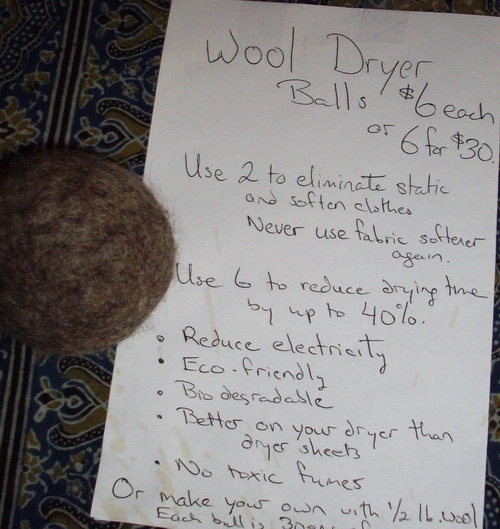 Wool Dryer
Balls $6 each
or
6 for $30.
Use 2 to eliminate static
and soften clothes
Never use fabric softener
again.
Use 6 to reduce drying time
by up to 40%.
• Reduce electricity
• Eco-friendly
• Biodegradable
• Better on your dryer than
dryer sheets
• No toxic fumes
Or make your own with 1/2 lb. wool
Each ball is